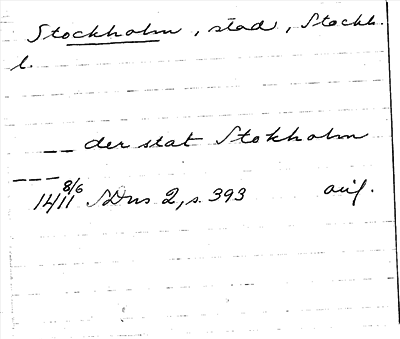 Stockholm, stad, Stockh.
l.
__ der stat Stokholm
---
14 8/6 11 SDns 2, s. 393 avs.